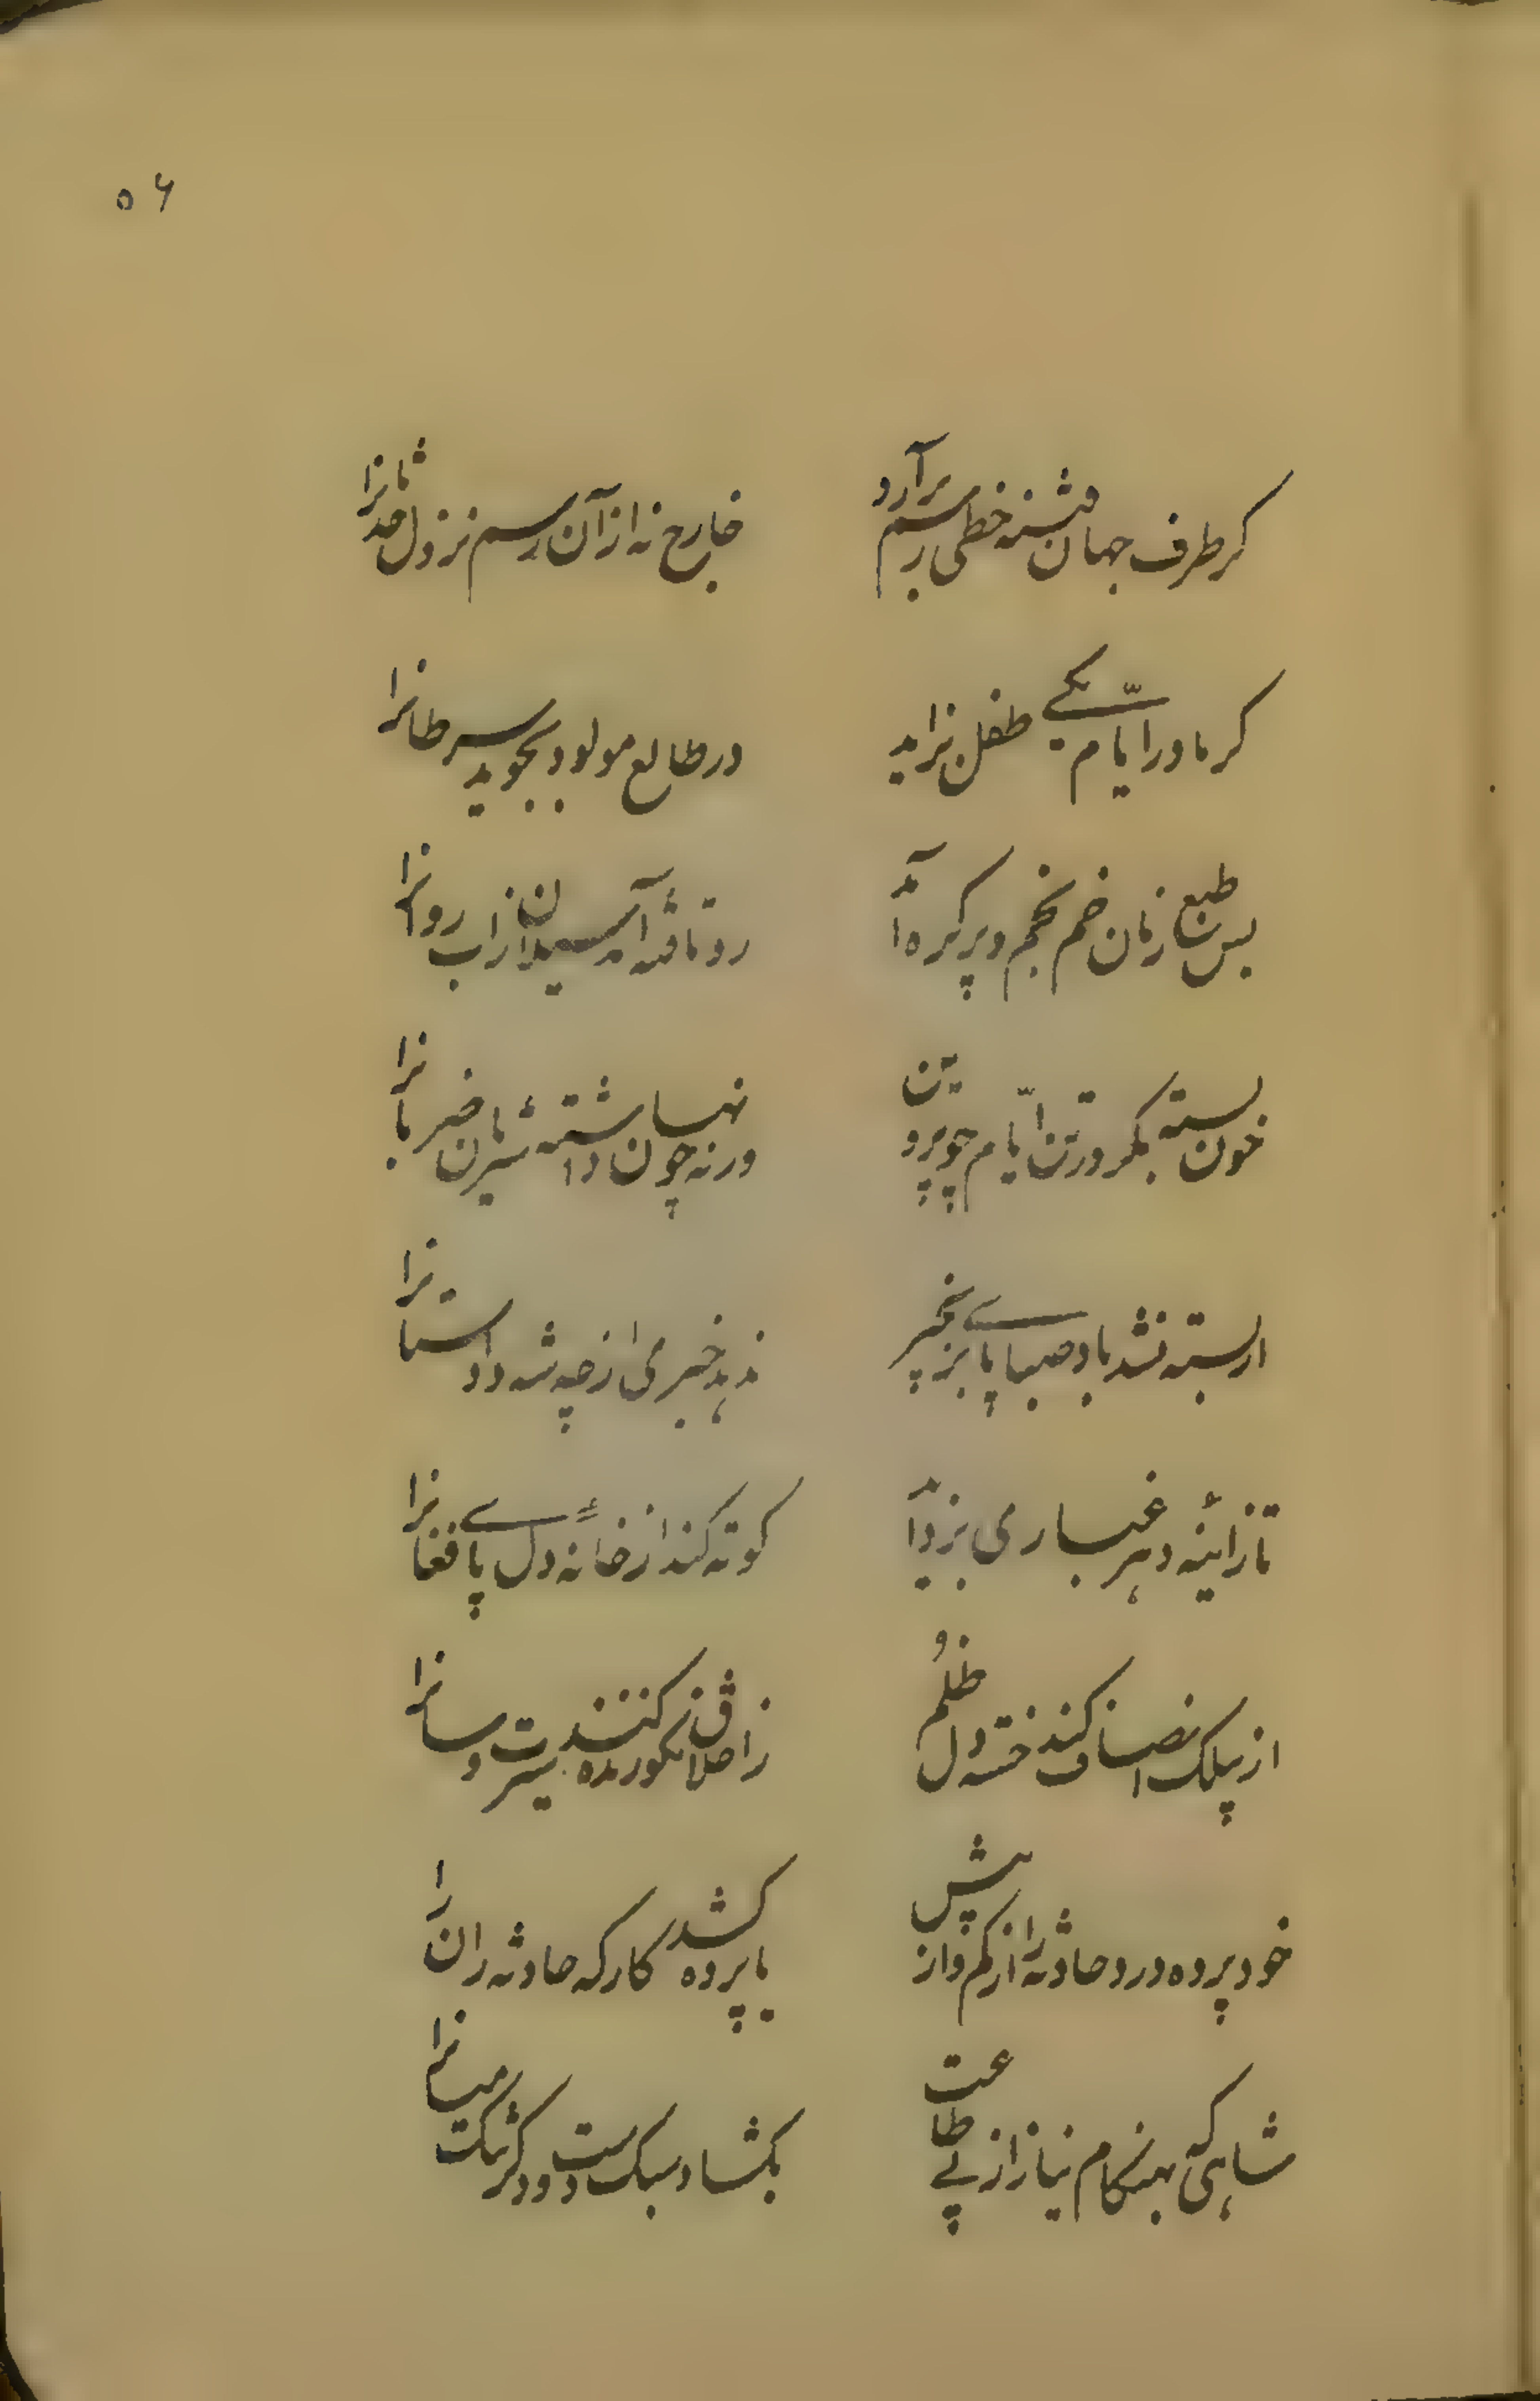 ٥٦
کر طرف جهان فتنه خطی برسم برآرد
خارج نه از آن رسم نزول حدثانرا
کر مادر ایّام یکے طفل بزاید
در طالع مولود بجوید سرطانرا
بس طبع زمان خم بخم و پر کره آمد
رو تافته آمد سیلان از اب روانرا
خون بسته بکر در تن ایّام چو پروین
ورنه چون داشته شریان ضربانرا
ار بسته نشد باد صبا پاے بزنجیر
ندهد خبری از چه شه دادستانرا
تا ز ائینه دهر غباری بزداید
کوته کند از خانهٔ دل پاے فغانرا
از پیلک انصاف کند خسته دل ظلُم
ز اخلاق نکو زنده کنند سیرت و سانرا
خود پرده درد حادثه را از کم و از بیش
یا پرده کشد کارکه حادثه ران را
شاهی که بهنکام نیاز از پے طاعت
بکشاد سبک دست و دکر تنکت میانرا